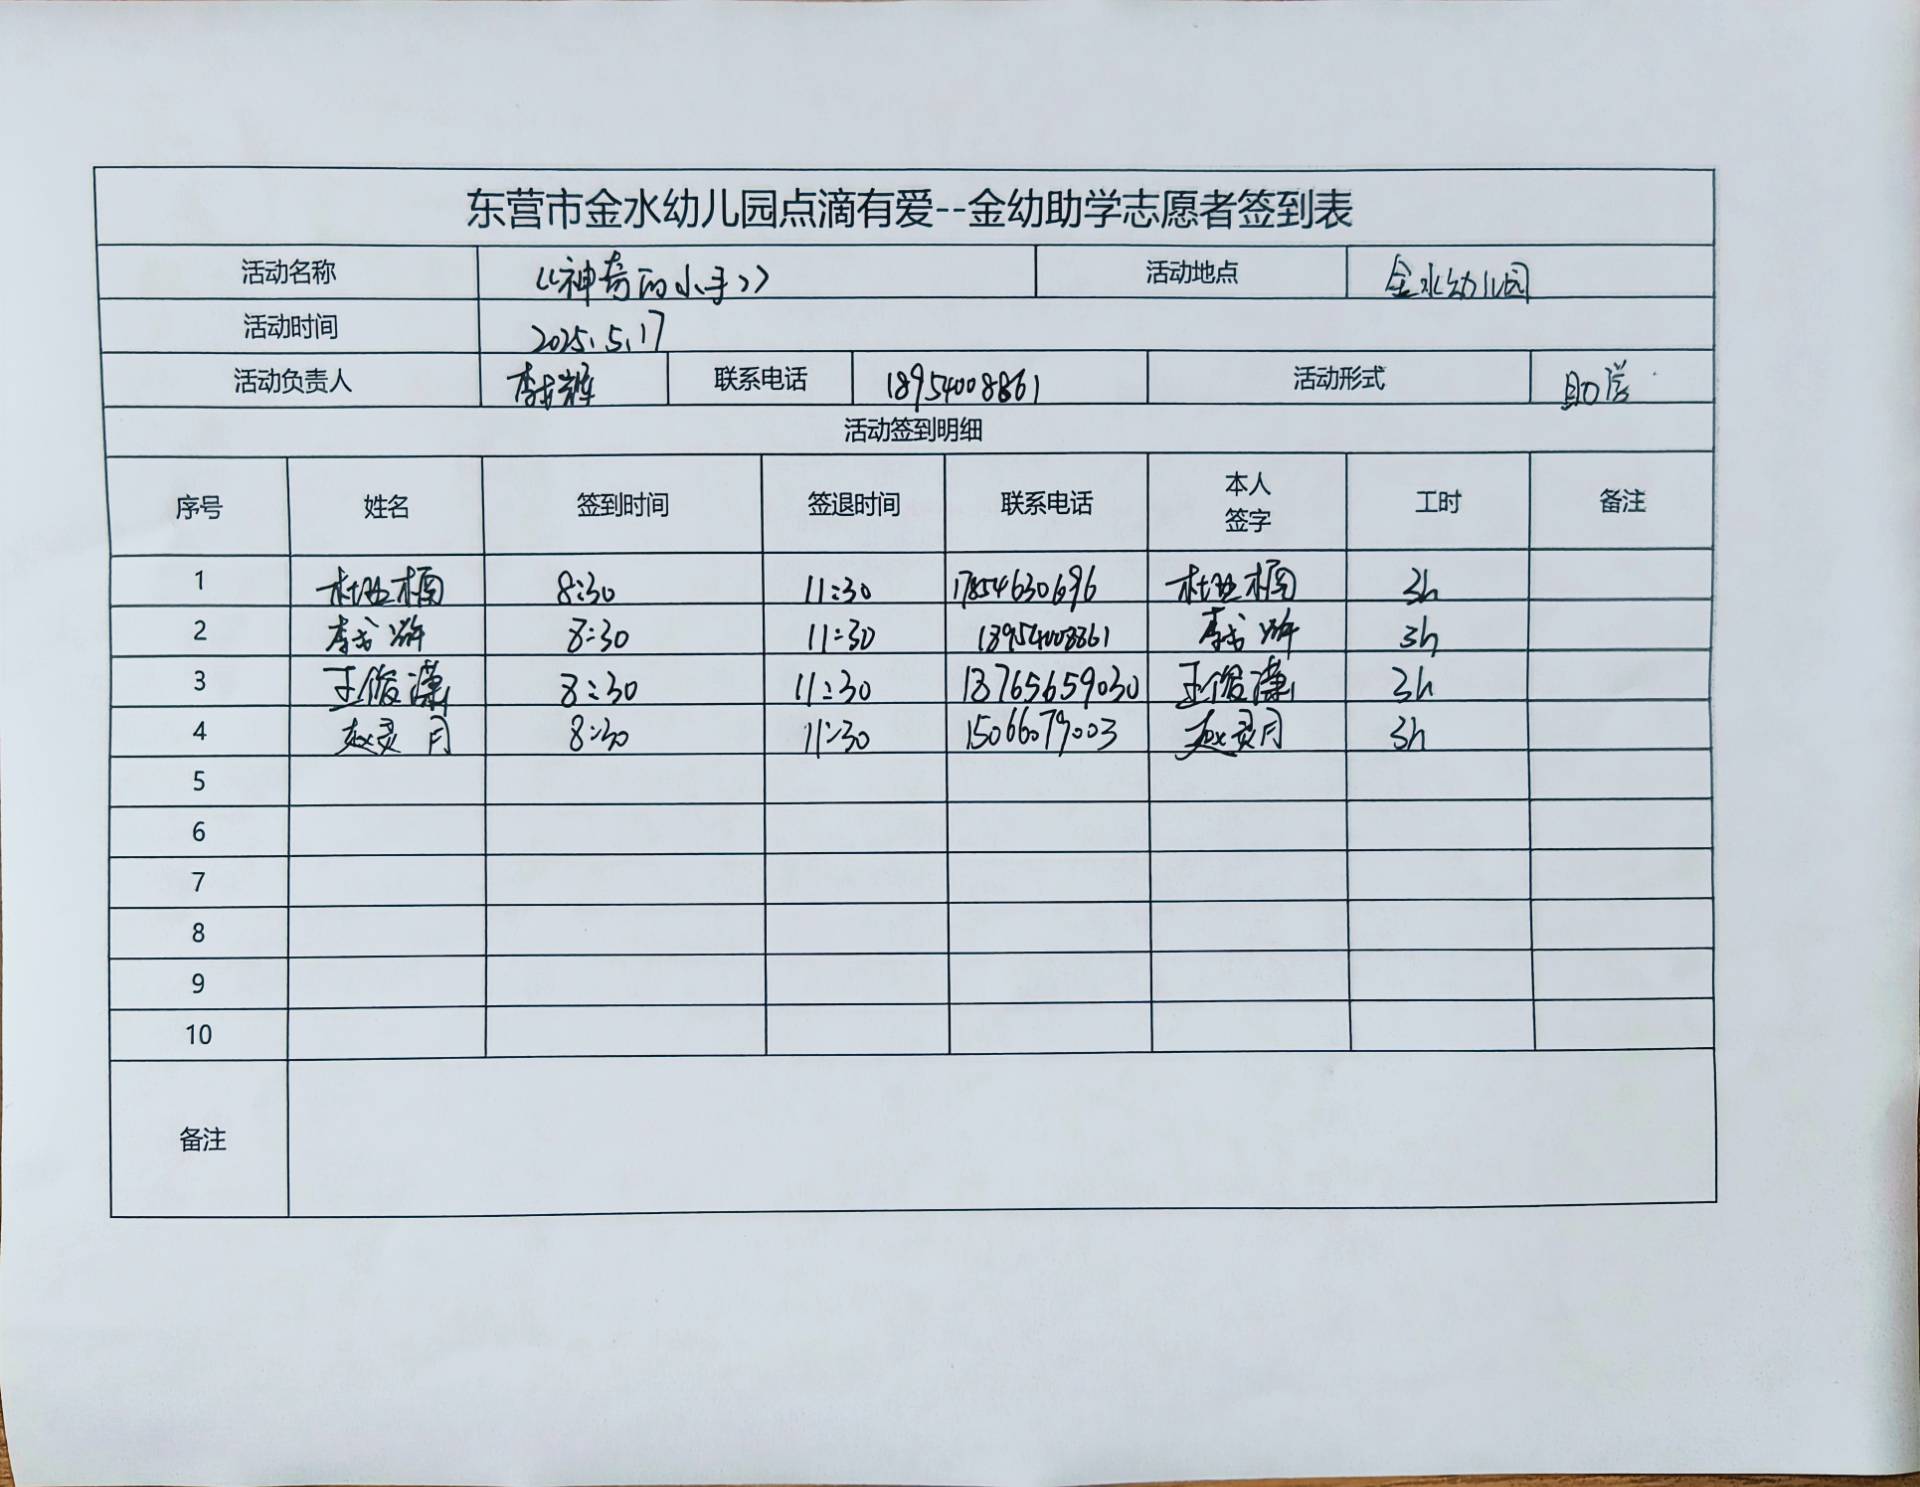 东营市金水幼儿园点滴有爱--金幼助学志愿者签到表
活动名称 《神奇的小手》 活动地点 金水幼儿园
活动时间 2025.5.17
活动负责人 联系电话 18954008861 活动形式 助学
活动签到明细
序号 姓名 签到时间 签退时间 联系电话 本人签字 工时 备注
1 8:30 11:30 17854630696 3h
2 8:30 11:30 18954008861 3h
3 王俊潇 8:30 11:30 18765659030 王俊潇 3h
4 赵灵月 8:30 11:30 15066079003 赵灵月 3h
5
6
7
8
9
10
备注